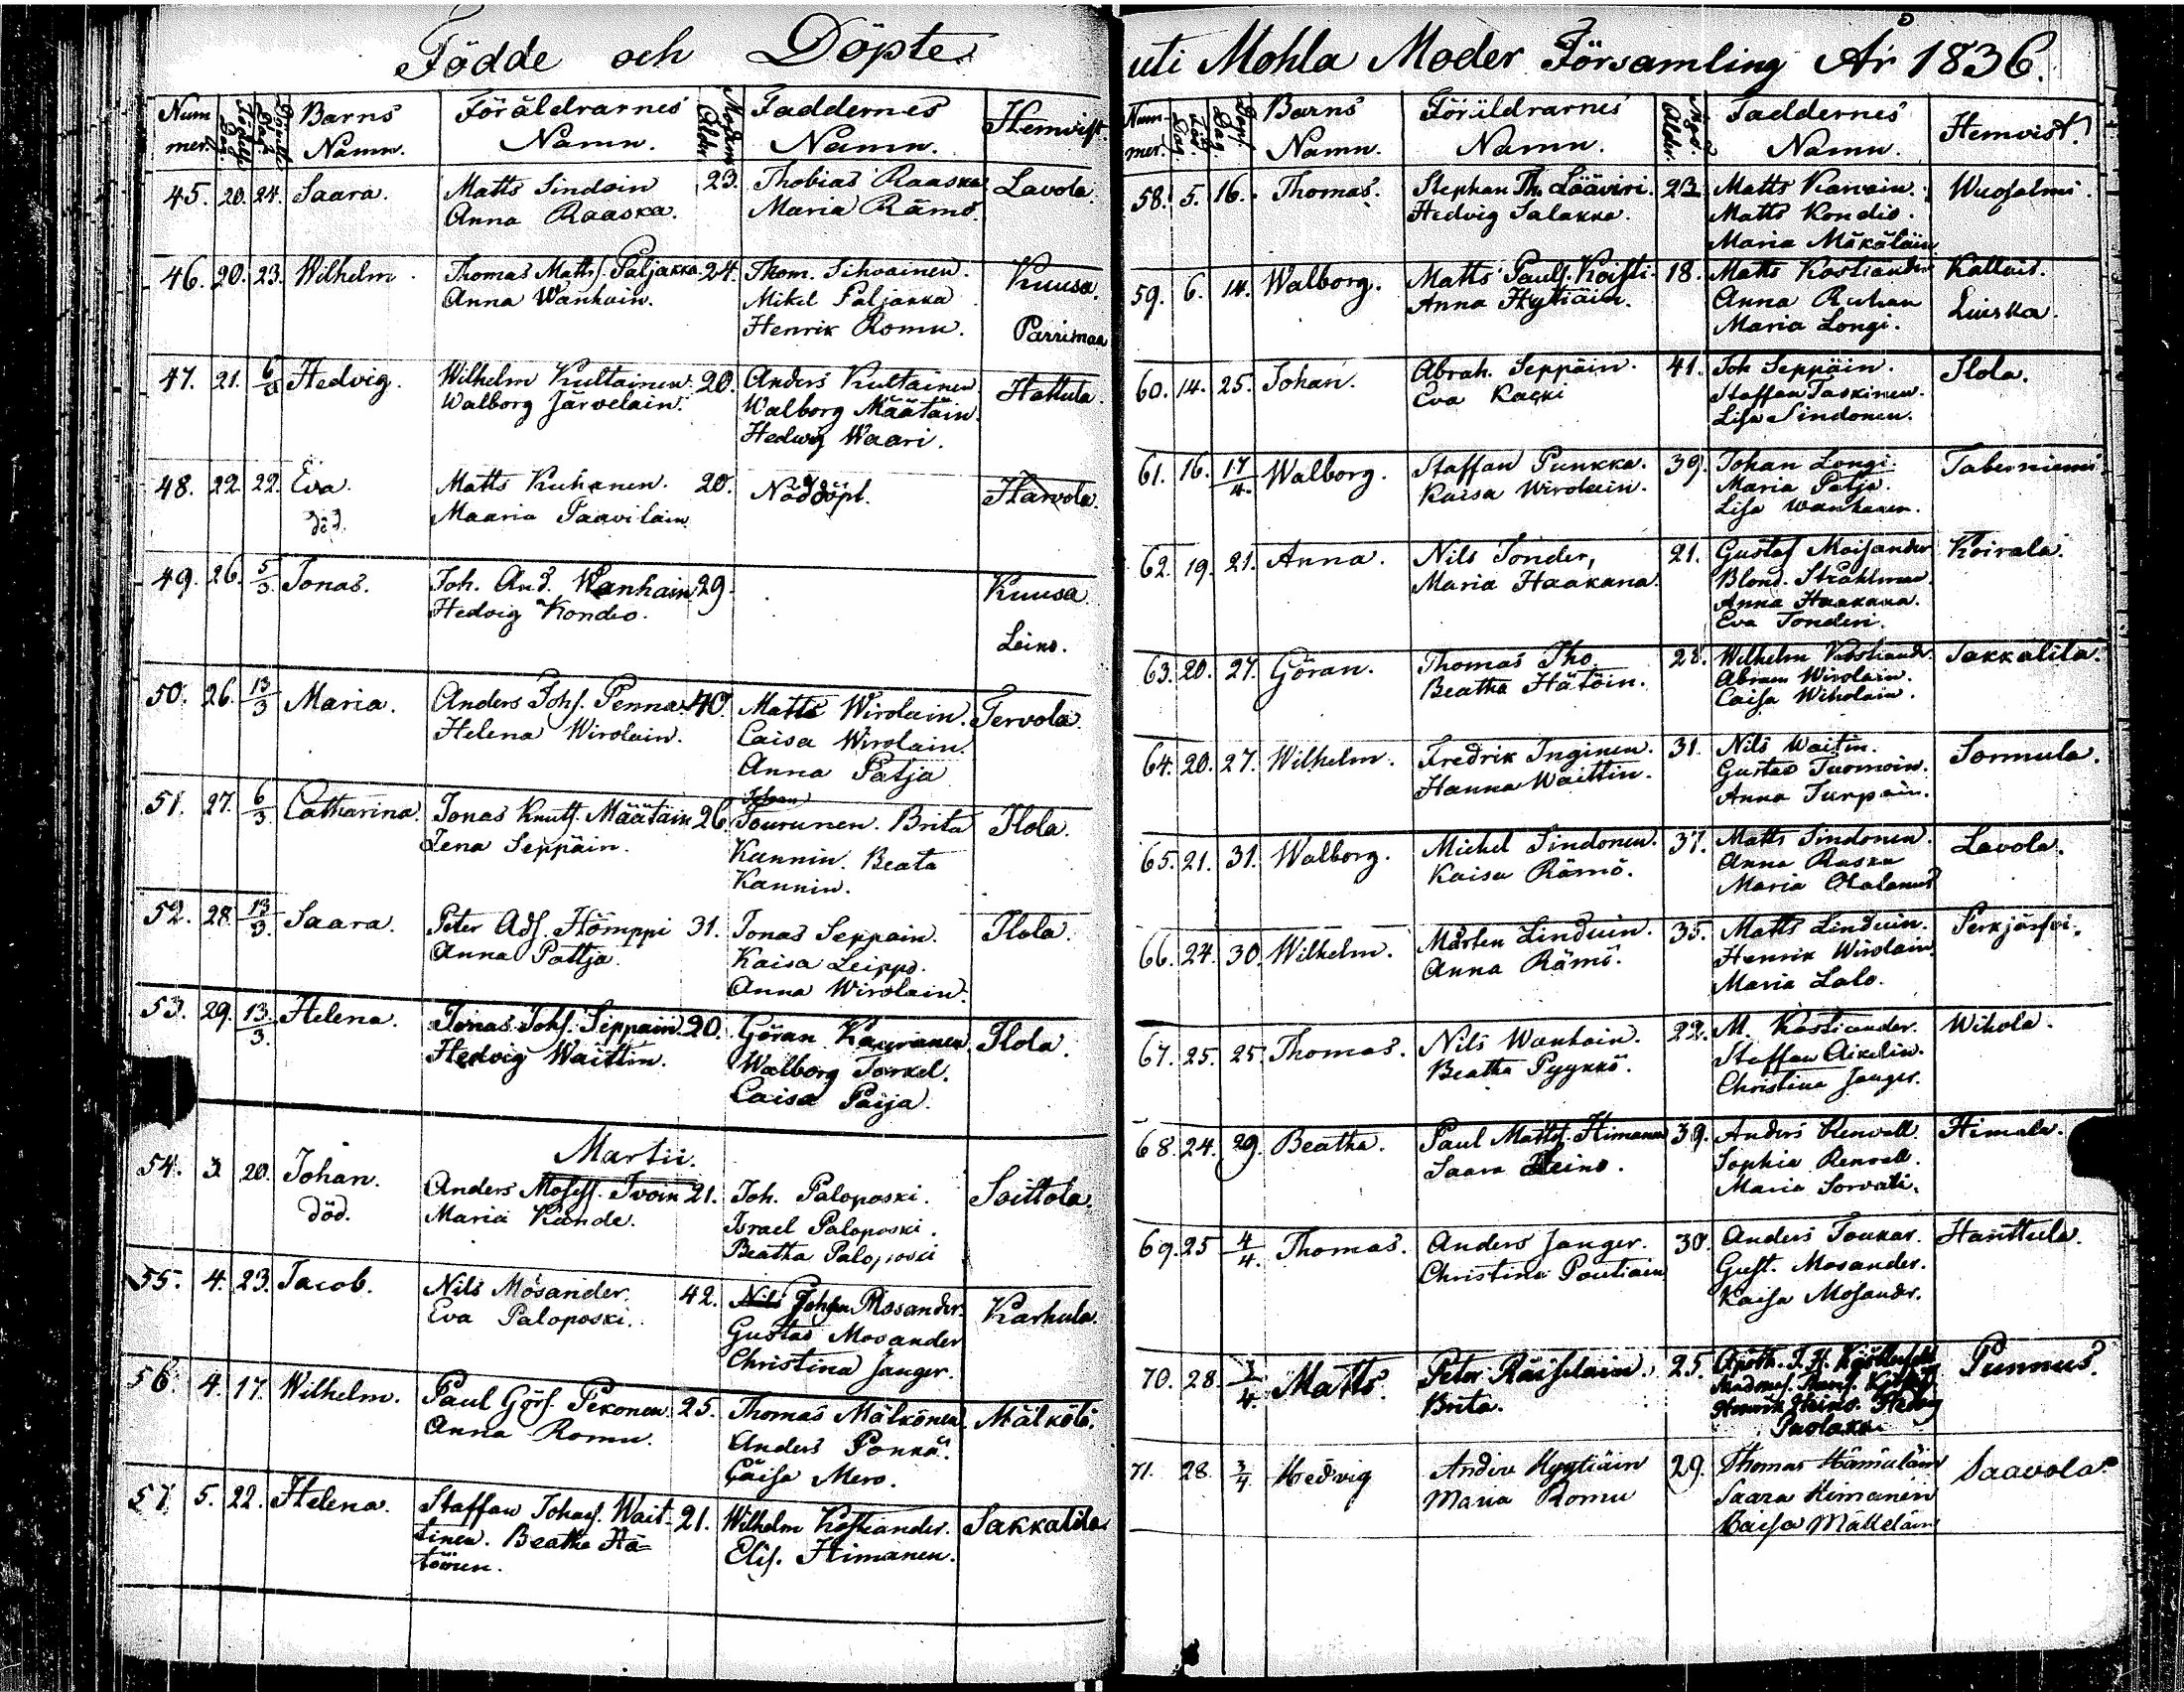 Födde och Döpte
Num mer. Födelse Dag. Döpelse Dag. Barns Namn. Föräldrarnes Namn. Modrens Ålder. Faddernes Namn. Hemvist.
45. 20. 24. Saara. Matts Sindoin 23. Thobias Raaska Lavola.
Anna Raaska. Maria Rämö.
46. 20. 23. Wilhelm. Thomas Matts. Paljakka. 24. Thom. Sihvainen. Kuusa.
Anna Wanhain. Mikel Paljakka
Henrik Romu. Parrimaa
47. 21. 6/3 Hedvig. Wilhelm Kultainen. 20. Anders Kultainen Hattula.
Walborg Järvelain. Walborg Määtäin.
Hedwig Waari.
48. 22. 22. Eva. Matts Kuhanen. 20. Nöddöpt. Harvola.
död. Maaria Taavilain.
49. 26. 5/3. Jonas. Joh. And. Wanhain 29. Kuusa.
Hedvig Kondio.
Leino.
50. 26. 13/3 Maria. Anders Johs. Penna. 40. Matts Wirolain. Tervola.
Helena Wirolain. Caisa Wirolain.
Anna Patja
Johan
51. 27. 6/3 Catharina. Jonas Knuts. Määtäin 26. Tourunen. Brita Ilola.
Lena Seppäin. Kannin. Beata
Kannin.
52. 28. 13/3. Saara. Peter Ads. Hömppi 31. Jonas Seppain. Ilola.
Anna Pattja. Kaisa Leippo.
Anna Wirolain.
53. 29. 13/3. Helena. Jonas Johs. Seppain. 20. Göran Kauranen. Ilola.
Hedvig Waittin. Walborg Torkel.
Caisa Paija.
Martii.
54. 3. 20. Johan. Anders Moses. Ivoin 21. Joh. Paloposki. Soittola.
död. Maria Kände. Israel Paloposki.
Beatha Paloposki
55. 4. 23. Jacob. Nils Mosander. 42. Nils Johan Mosander. Karhula.
Eva Paloposki. Gustav Mosander
Christina Janger.
56. 4. 17. Wilhelm. Paul Görs. Pekonen. 25. Thomas Mälkönen. Mälkölä.
Anna Romu. Anders Ponka.
Caisa Mero.
57. 5. 22. Helena. Staffan Johans. Wait- 21. Wilhelm Kostiander. Sakkalila
tinen. Beatha Hä= Elis. Himanen.
töinen.
uti Mohla Moder Församling År 1836.
Num- mer. Föd. Dag. Döp. Dag. Barns Namn. Föräldrarnes Namn. Ålder. Faddernes Namn. Hemvist.
58. 5. 16. Thomas. Stephan Th. Lääviri. 23 Matts Karvain. Wuosalmi.
Hedvig Salakka. Matts Kondio.
Maria Mäkäläin
59. 6. 14. Walborg. Matts Pauls. Koisti. 18. Matts Kostiander
Anna Hytiäin. Anna Liuska.
Maria Longi.
60. 14. 25. Johan. Abrah. Seppäin. 41. Joh Seppäin. Ilola.
Eva Staffan Taskinen.
Lisa Sindonen.
61. 16. 17/4. Walborg. Staffan Punkka. 39. Johan Longi. Taberniemi.
Kaisa Wirolain. Maria Patja.
Lisa Wanhanen.
62. 19. 21. Anna. Nils Tonder, 21. Gustaf Moisander Koirala.
Maria Haakana. Blond. Stråhlman
Anna Haakana.
Eva Tonderi.
63. 20. 27. Göran. Thomas Tho. 28. Wilhelm Kostiander. Sakkalila.
Beatha Hätöin. Abram Wirolain.
Caisa Wiholain.
64. 20. 27. Wilhelm. Fredrik Inginen. 31. Nils Waitin. Sormula.
Hanna Waittin. Gustav Tuomoin.
Anna Turpain.
65. 21. 31. Walborg. Michel Sindonen. 37. Matts Sindonen. Lavola.
Kaisa Rämö. Anna Raska
Maria
66. 24. 30. Wilhelm. Mårten Linduin. 35. Matts Linduin. Perkjärfvi.
Anna Rämö. Henrik Wirolain
Maria Lalo.
67. 25. 25. Thomas. Nils Wanhain. 22. M. Kostiander. Wihola.
Beatha Pyykkö. Staffan Aikelin.
Christina Janger.
68. 24. 29. Beatha. Paul Matts. Himanen 39. Anders Renvall. Himala.
Saara Heino. Sophia Renvall.
Maria Sorvali.
69. 25 4/4. Thomas. Anders Janger. 30. Anders Toukar. Hanttula.
Christina Poutiain Gust. Mosander.
Kaisa Mosandr.
70. 28. 3/4. Matts. Peter Räiselain. 25. Apoth. J. H. Punnus.
Brita. Henrik Heino. Hedvig
Puolakka
71. 28. 3/4 Hedvig Andin Hyytiäin 29. Thomas Hämäläin Saavola.
Maria Romu Saara Himanen
Caisa Mälleläin